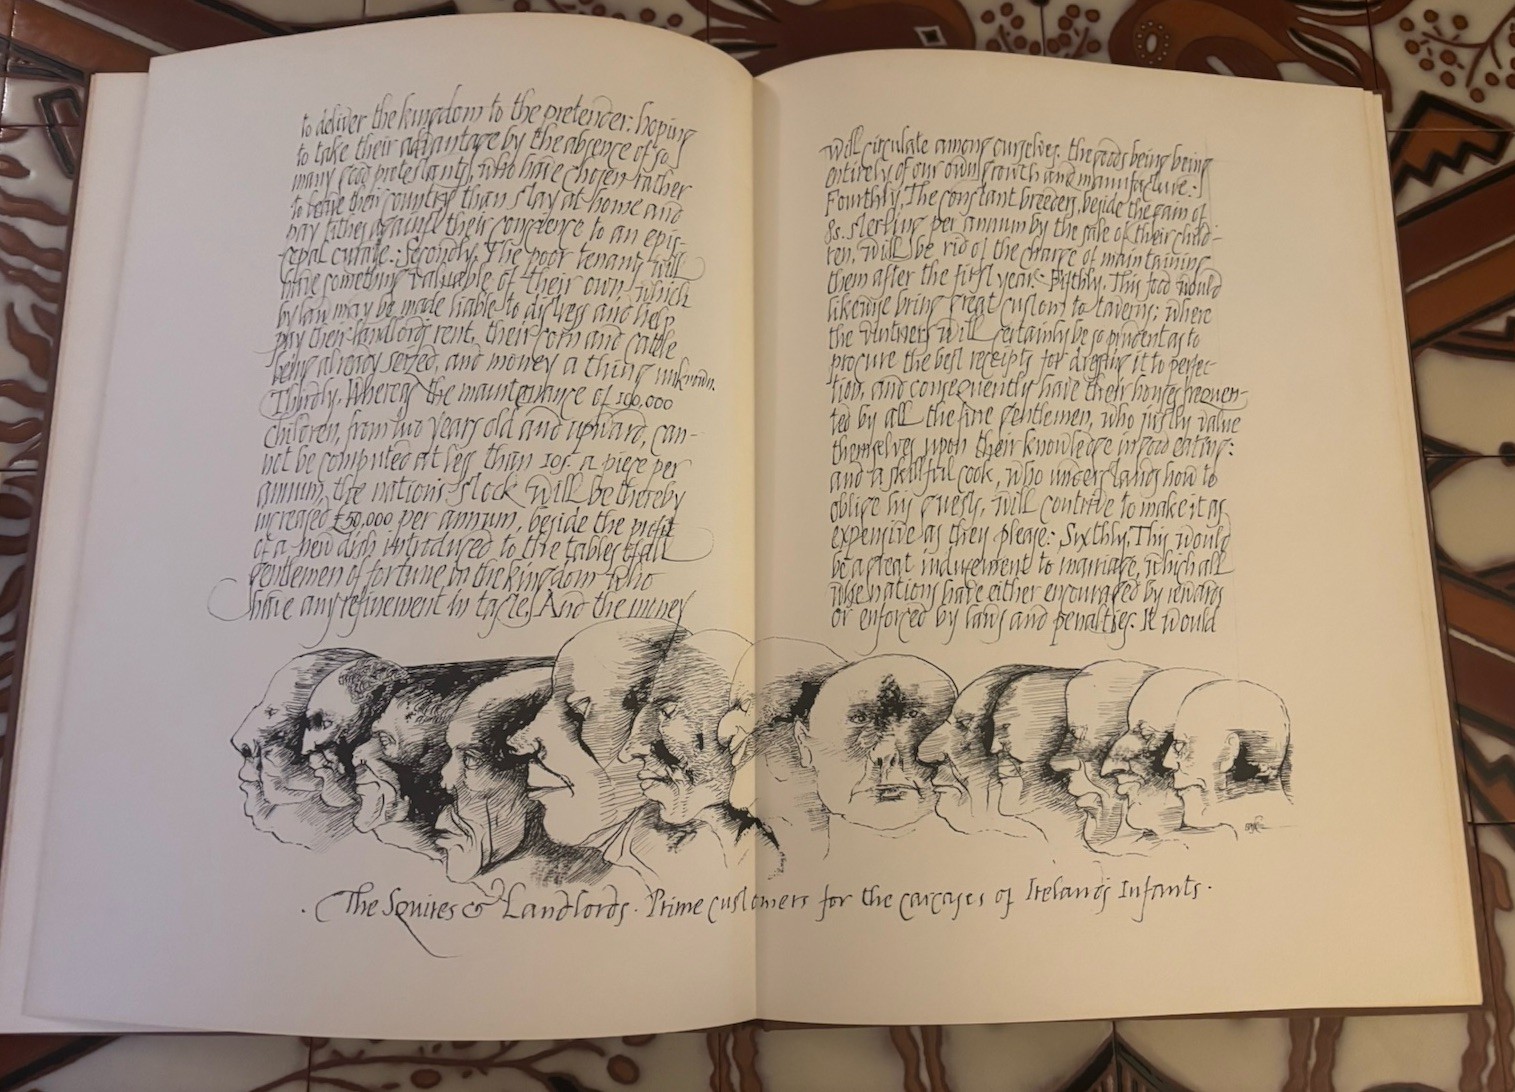 to deliver the kingdom to the pretender: hoping
to take their advantage by the absence of so
many good protestants, who have chosen rather
to leave their country than stay at home and
pay tithes against their conscience to an epis-
copal curate: Secondly, The poor tenants will
have something valuable of their own, which
by law may be made liable to distress and help
pay their landlord's rent, their corn and cattle
being already seized, and money a thing unknown.
Thirdly, Whereas the maintenance of 100,000
children, from two years old and upward, can-
not be computed at less than 10s. a piece per
annum, the nation's stock will be thereby
increased £50,000 per annum, beside the profit
of a new dish introduced to the tables of all
gentlemen of fortune in the kingdom who
have any refinement in taste. And the money
will circulate among ourselves, the goods being being
entirely of our own growth and manufacture:
Fourthly, The constant breeders, beside the gain of
8s. sterling per annum by the sale of their child-
ren, will be rid of the charge of maintaining
them after the first year: Fifthly, This food would
likewise bring great custom to taverns; where
the vintners will certainly be so prudent as to
procure the best receipts for dressing it to perfec-
tion, and consequently have their houses frequen-
ted by all the fine gentlemen, who justly value
themselves upon their knowledge in good eating:
and a skillful cook, who understands how to
oblige his guests, will contrive to make it as
expensive as they please: Sixthly, This would
be a great inducement to marriage, which all
wise nations have either encouraged by rewards
or enforced by laws and penalties. It would
· The Squires & Landlords · Prime customers for the carcases of Ireland's Infants ·